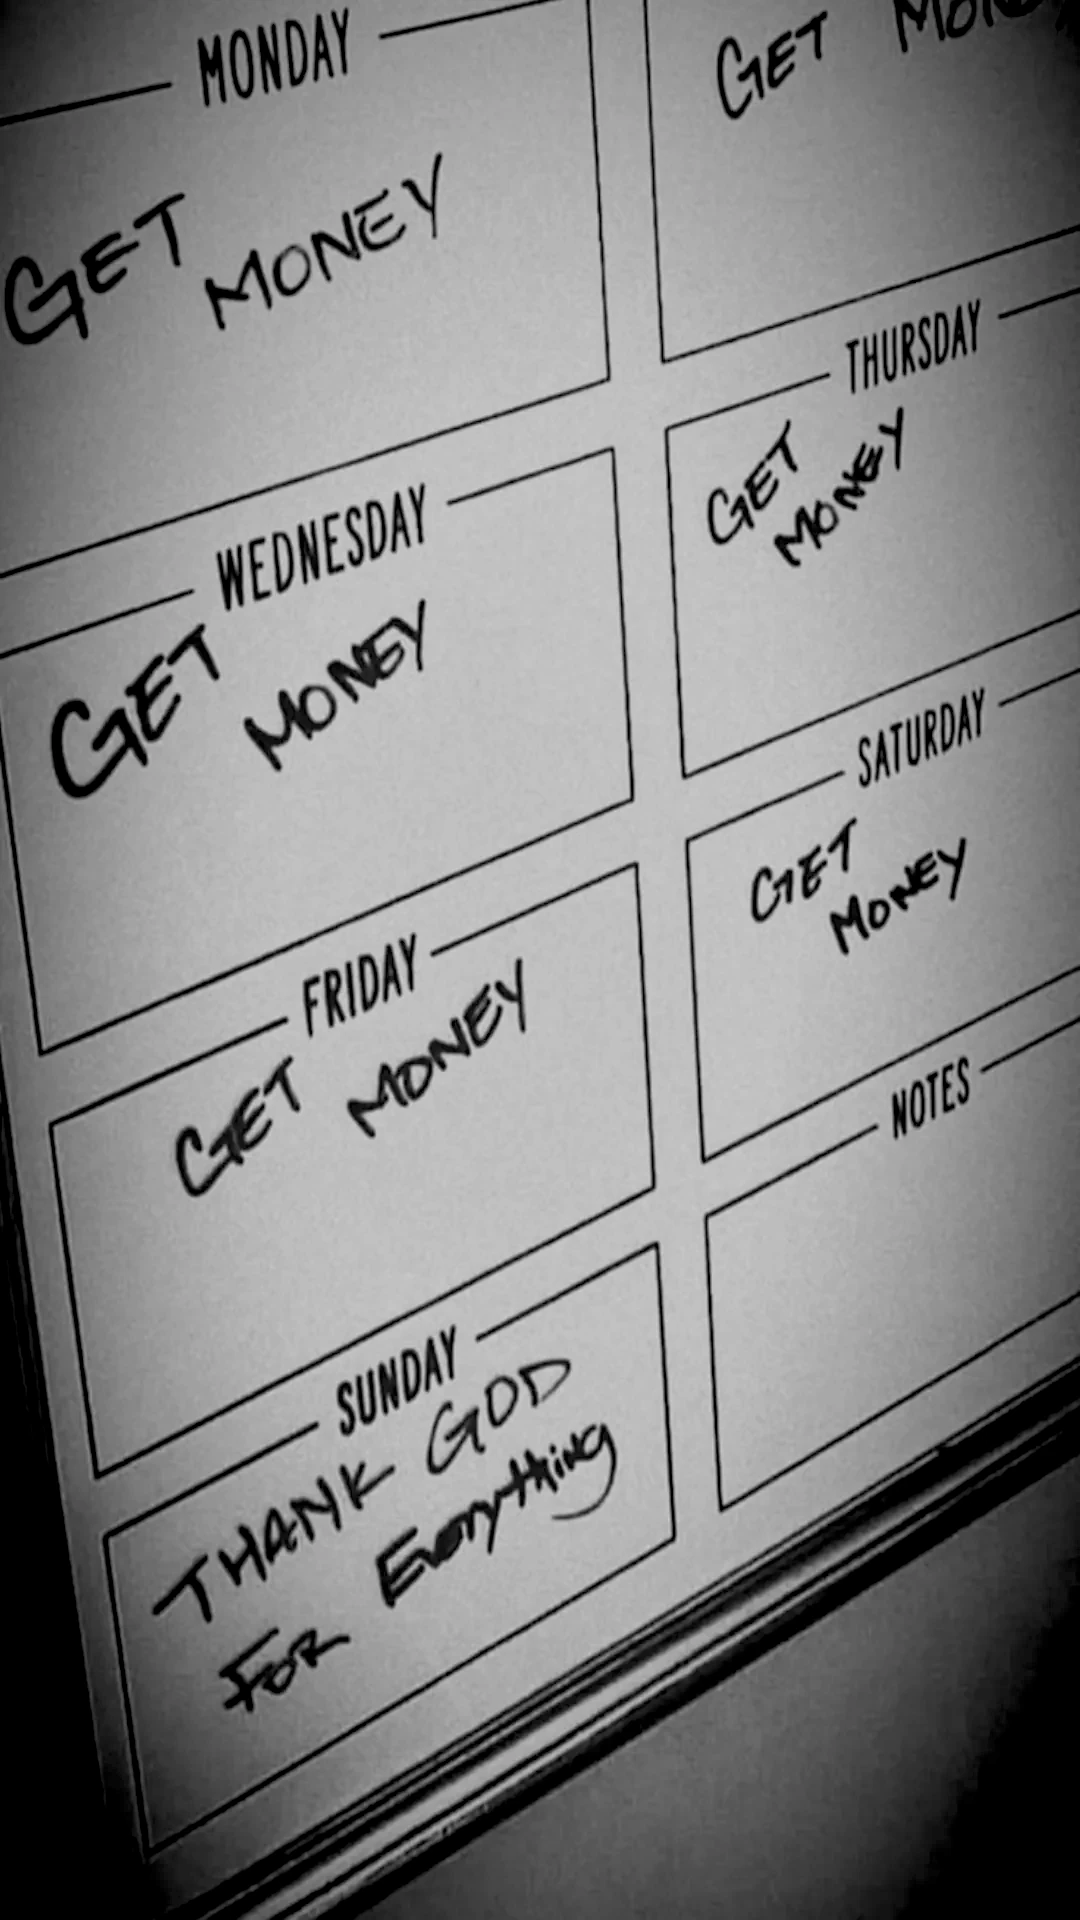 MONDAY
GET MONEY
GET
WEDNESDAY
GET MONEY
THURSDAY
GET
MONEY
FRIDAY
GET MONEY
SATURDAY
GET
MONEY
SUNDAY
THANK GOD
FOR Everything
NOTES